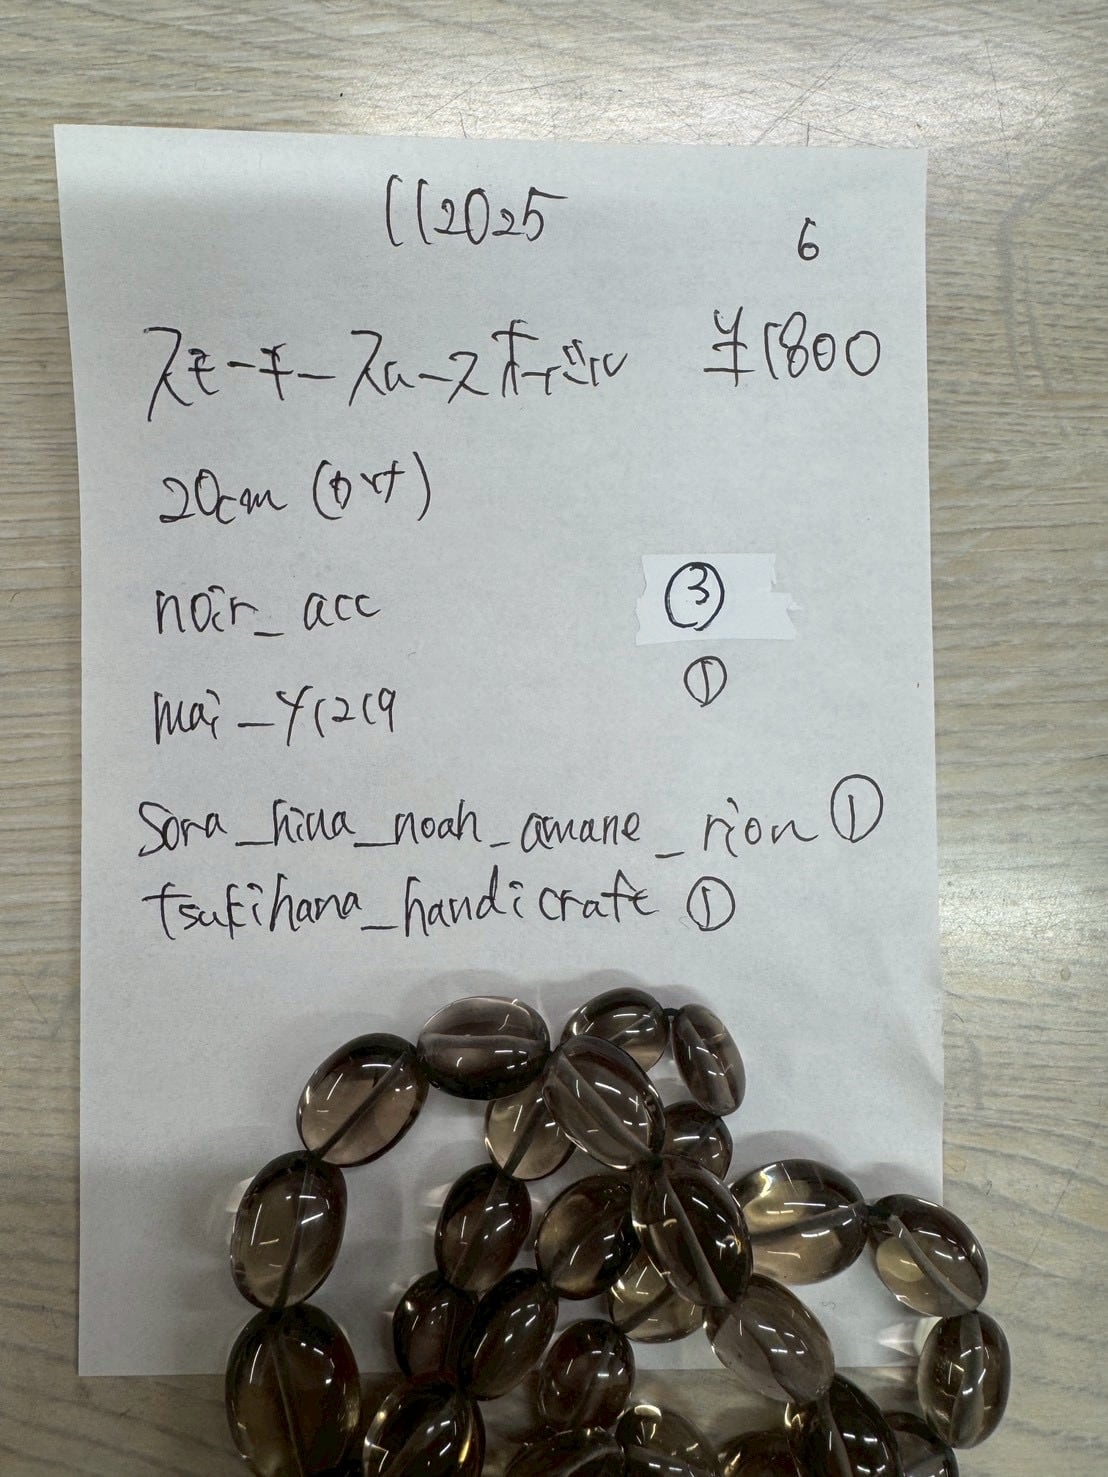 112025
6
スモーキースムースオーバル ¥1800
20cm
noir_acc ③
mai_y1219 ①
sora_hina_noah_amane_rion ①
tsukihana_handicraft ①